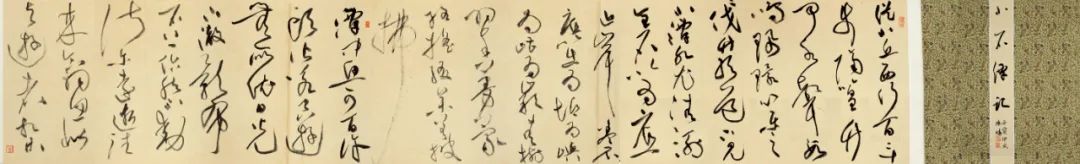 小石潭记
從小丘西行百二十
步隔篁竹
聞水聲如
鳴珮環心樂之
伐竹取道下見
小潭水尤清冽
全石以為底
近岸卷石
底以出為坻為嶼
為嵁為巖青樹
翠蔓蒙
絡搖綴參差披
拂
潭中魚可百許
頭皆若空游
無所依日光
下澈影布
石上佁然不動
俶爾遠逝往
來翕忽似
與遊者相樂